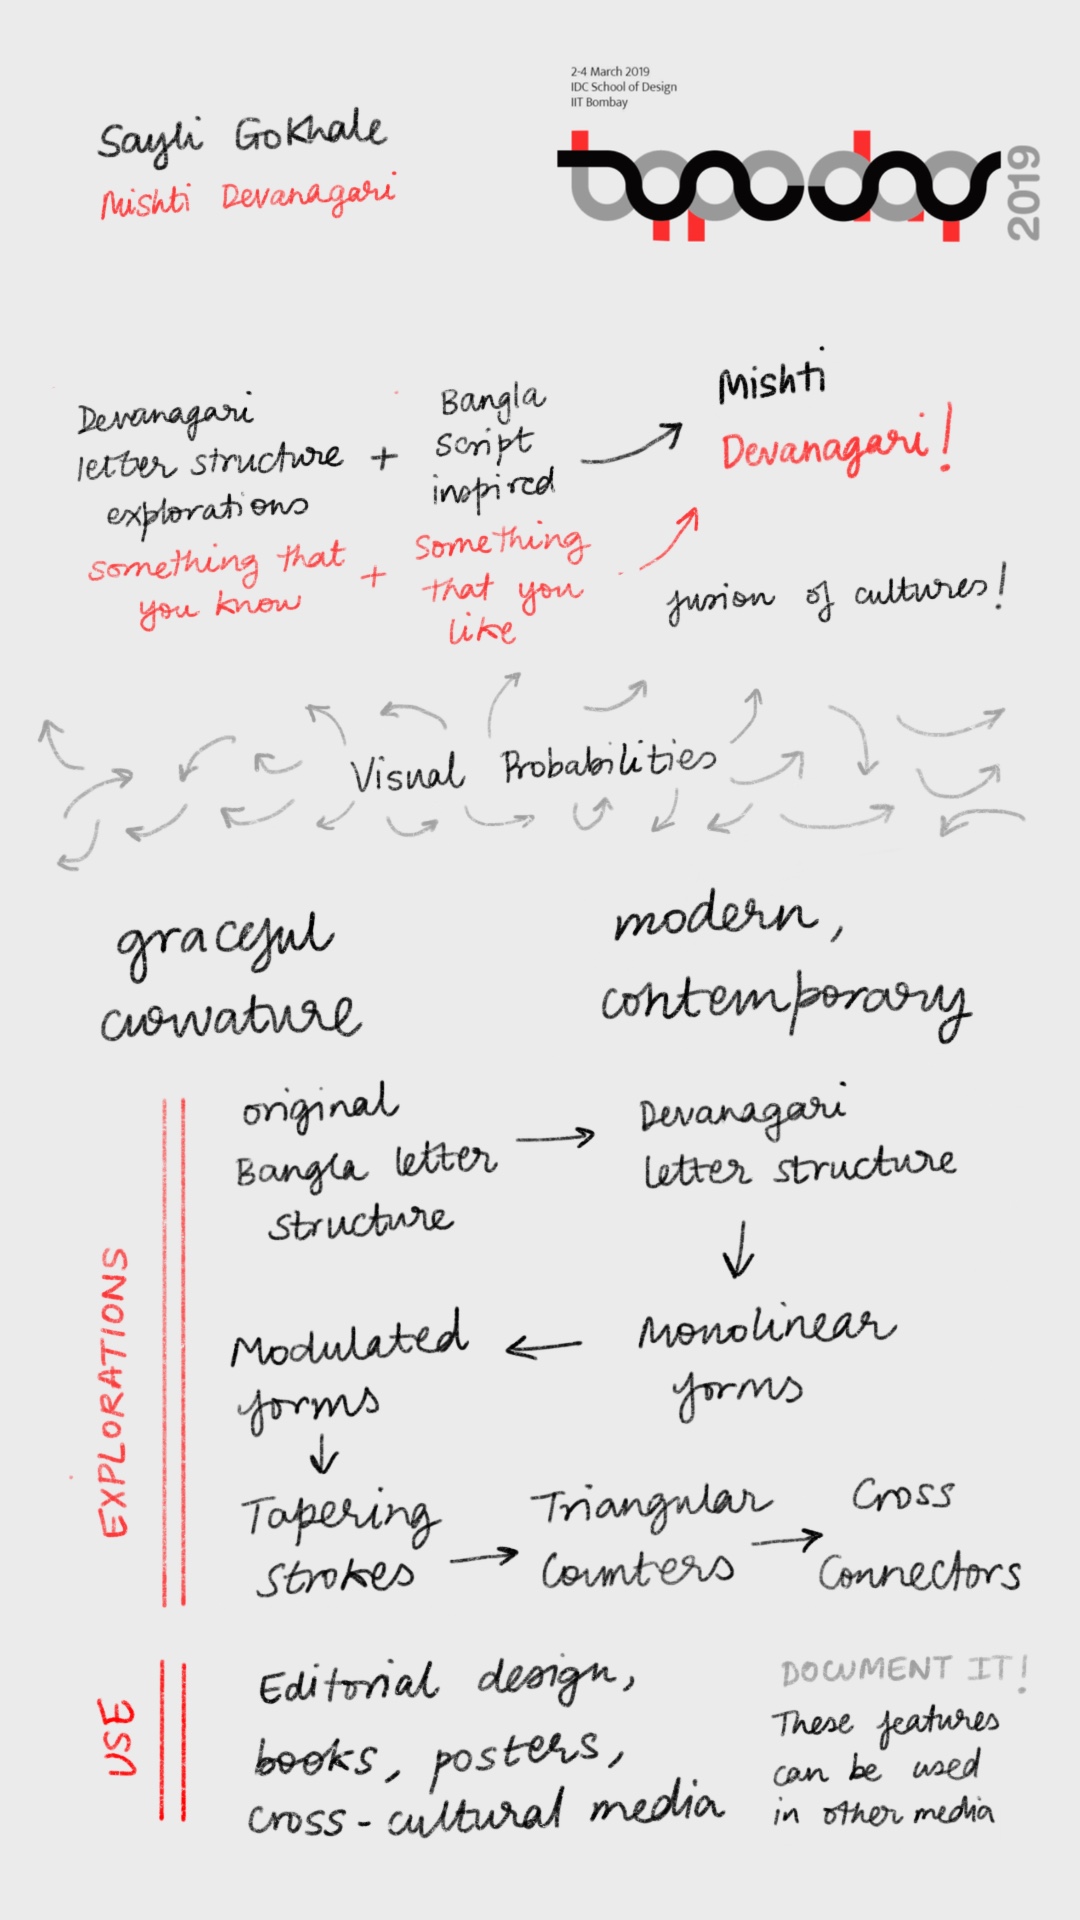 2-4 March 2019
IDC School of Design
IIT Bombay
typoday
2019
Sayli Gokhale
Mishti Devanagari
Devanagari
letter structure
explorations
+
Bangla
Script
inspired
Mishti
Devanagari!
something that
you know
+
Something
that you
like
fusion of cultures!
Visual Probabilities
graceful
curvature
modern,
contemporary
EXPLORATIONS
original
Bangla letter
structure
Devanagari
letter structure
Monolinear
forms
Modulated
forms
Tapering
Strokes
Triangular
Counters
Cross
Connectors
USE
Editorial design,
books, posters,
cross-cultural media
DOCUMENT IT!
These features
can be used
in other media